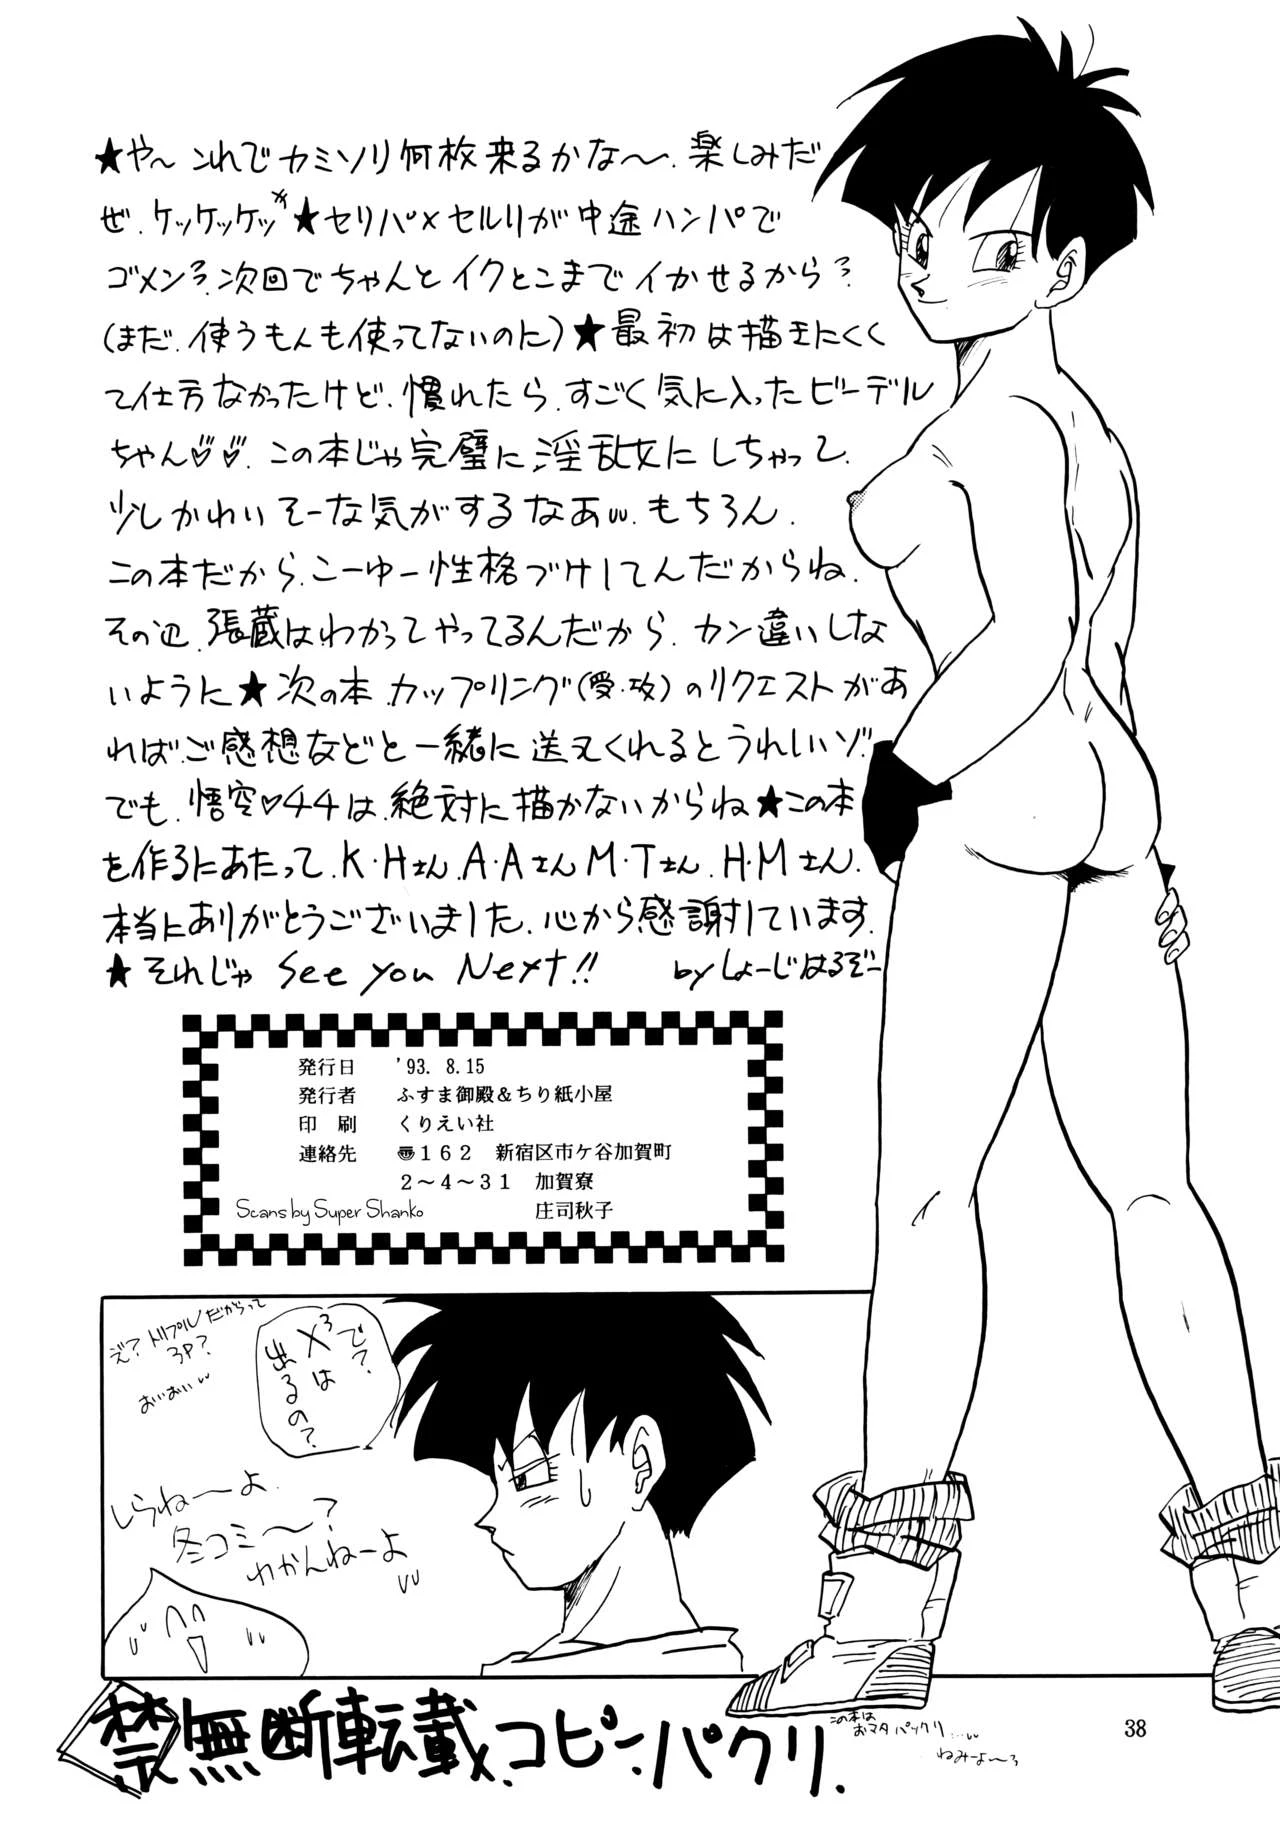 ★や〜これでカミソリ何枚来るかな〜。楽しみだ
ぜ。ケッケッケッ★セリパ×セルリが中途ハンパで
ゴメン?。次回でちゃんとイクとこまでイかせるから?
(まだ、使うもんも使ってないのに)★最初は描きにくく
て仕方なかったけど、慣れたら、すごく気に入ったビーデル
ちゃん♡♡。この本じゃ完璧に淫乱女にしちゃって、
少しかわいそーな気がするなあ。もちろん、
この本だから、こーゆー性格づけしてんだからね。
その辺、張蔵はわかってやってるんだから、カン違いしな
いように★次の本、カップリング(受・攻)のリクエストがあ
れば、ご感想などと一緒に送ってくれるとうれしいゾ。
でも、悟空♡チチは、絶対に描かないからね★この本
を作るにあたって、K・Hさん、A・Aさん、M・Tさん、H・Mさん、
本当にありがとうございました。心から感謝しています。
★それじゃ See you Next!! byしょーじはるぞー
発行日 '93. 8.15
発行者 ふすま御殿＆ちり紙小屋
印 刷 くりえい社
連絡先 〠１６２ 新宿区市ケ谷加賀町
２〜４〜３１ 加賀寮
庄司秋子
Scans by Super Shanko
で?
X³は
出るの?
え? トリプルだからって
3P?
おいおい
しらねーよ。
冬コミ〜?
わかんねーよ
禁無断転載、コピー、パクリ。
この本は
おマタパックリ……
ねみーよ〜
38